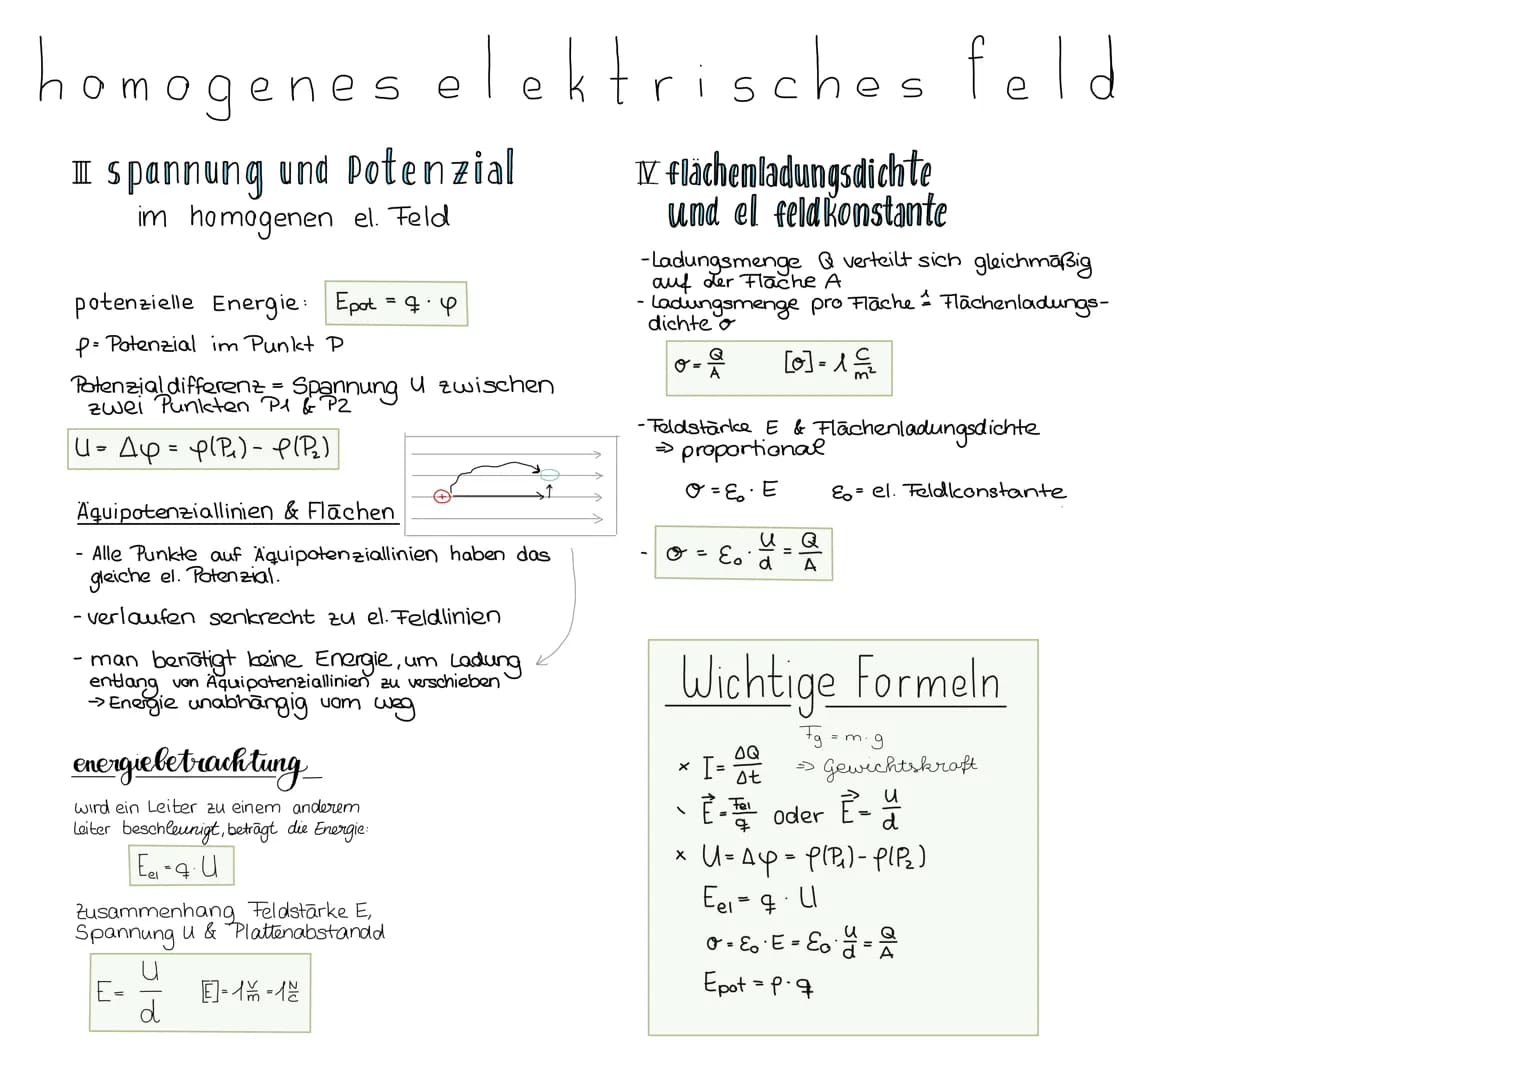 homogenes elektrisches feld
III spannung und Potenzial
im homogenen el. Feld
potenzielle Energie: Epot = q · φ
φ = Potenzial im Punkt P
Potenzialdifferenz = Spannung U zwischen
zwei Punkten P1 & P2
U = Δφ = φ(P₁) - φ(P₂)
+
Äquipotenziallinien & Flächen
- Alle Punkte auf Äquipotenziallinien haben das
gleiche el. Potenzial.
- verlaufen senkrecht zu el. Feldlinien
- man benötigt keine Energie, um Ladung
entlang von Äquipotenziallinien zu verschieben
→ Energie unabhängig vom weg
energiebetrachtung
wird ein Leiter zu einem anderem
Leiter beschleunigt, beträgt die Energie:
Eel = q · U
Zusammenhang Feldstärke E,
Spannung U & Plattenabstand d
E = U/d [E] = 1 V/m = 1 N/C
IV flächenladungsdichte
und el feldkonstante
- Ladungsmenge Q verteilt sich gleichmäßig
auf der Fläche A
- Ladungsmenge pro Fläche ≙ Flächenladungs-
dichte σ
σ = Q/A [σ] = 1 C/m²
- Feldstärke E & Flächenladungsdichte
⇒ proportional
σ = ε₀ · E ε₀ = el. Feldkonstante
- σ = ε₀ · U/d = Q/A
Wichtige Formeln
Fg = m · g
× I = ΔQ/Δt ⇒ Gewichtskraft
\ E⃗ = Fel/q oder E⃗ = U/d
× U = Δφ = φ(P₁) - φ(P₂)
Eel = q · U
σ = ε₀ · E = ε₀ · U/d = Q/A
Epot = φ · q